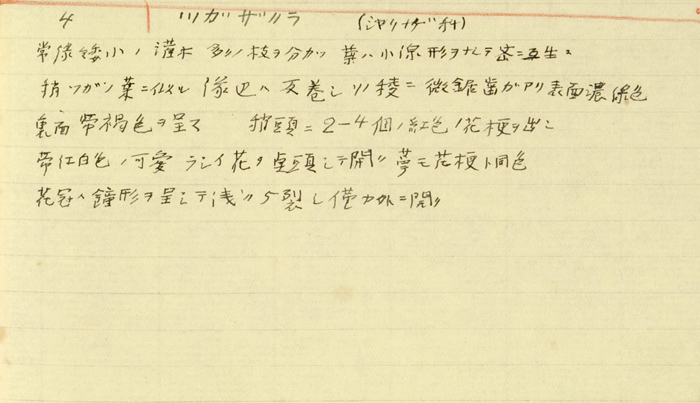 4 ツガザクラ (シャクナゲ科)
常緑矮小ノ潅木 多クノ枝ヲ分カツ 葉ハ小線形ヲナシテ密ニ互生ス
稍ツガノ葉ニ似ル 縁辺ハ反巻シソノ稜ニ微鋸歯ガアリ表面濃緑色
裏面帶褐色ヲ呈ス 稍頭ニ2-4個ノ紅色ノ花梗ヲ出シ
帶紅白色ノ可愛ラシイ花ヲ点頭シテ開ク 萼モ花梗ト同色
花冠ハ鐘形ヲ呈シテ浅ク5裂シ僅カ外ニ開ク